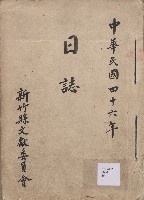 中華民國四十六年
日誌
新竹縣文獻委員會